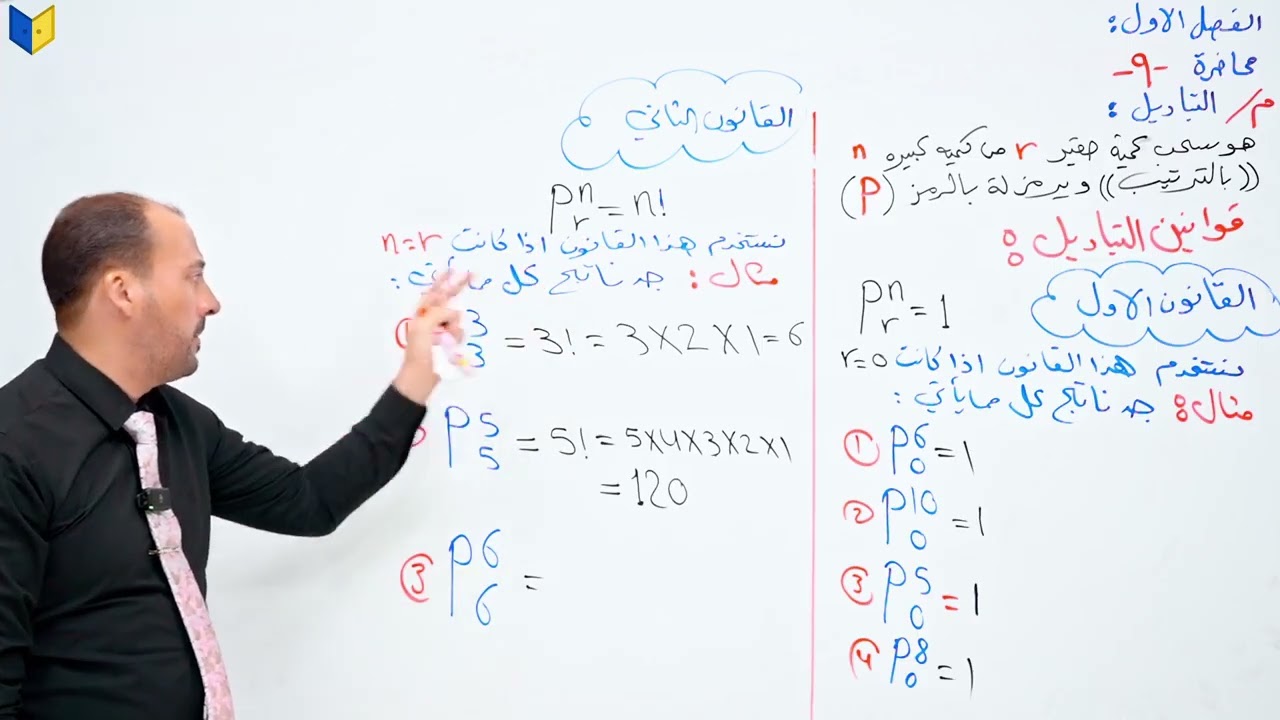 الفصل الاول:
محاضرة -9-
م/ التباديل:
هو سحب كمية صغير r من كميه كبيره n
((بالترتيب)) ويرمز له بالرمز (P)
قوانين التباديل:
القانون الاول
P n r = 1
نستخدم هذا القانون اذا كانت r=0
مثال: جد ناتج كل مايأتي:
① P 6 0 = 1
② P 10 0 = 1
③ P 5 0 = 1
④ P 8 0 = 1
القانون الثاني
P n r = n!
نستخدم هذا القانون اذا كانت n=r
مثال: جد ناتج كل مايأتي:
3 3 = 3! = 3X2X1 = 6
P 5 5 = 5! = 5X4X3X2X1
= 120
③ P 6 6 =